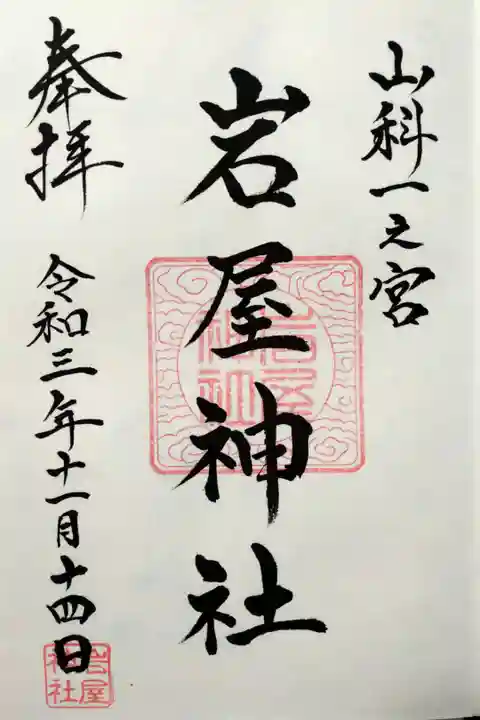 山科一之宮
岩屋神社
奉拝
令和三年十一月十四日
岩屋神社
岩屋神社